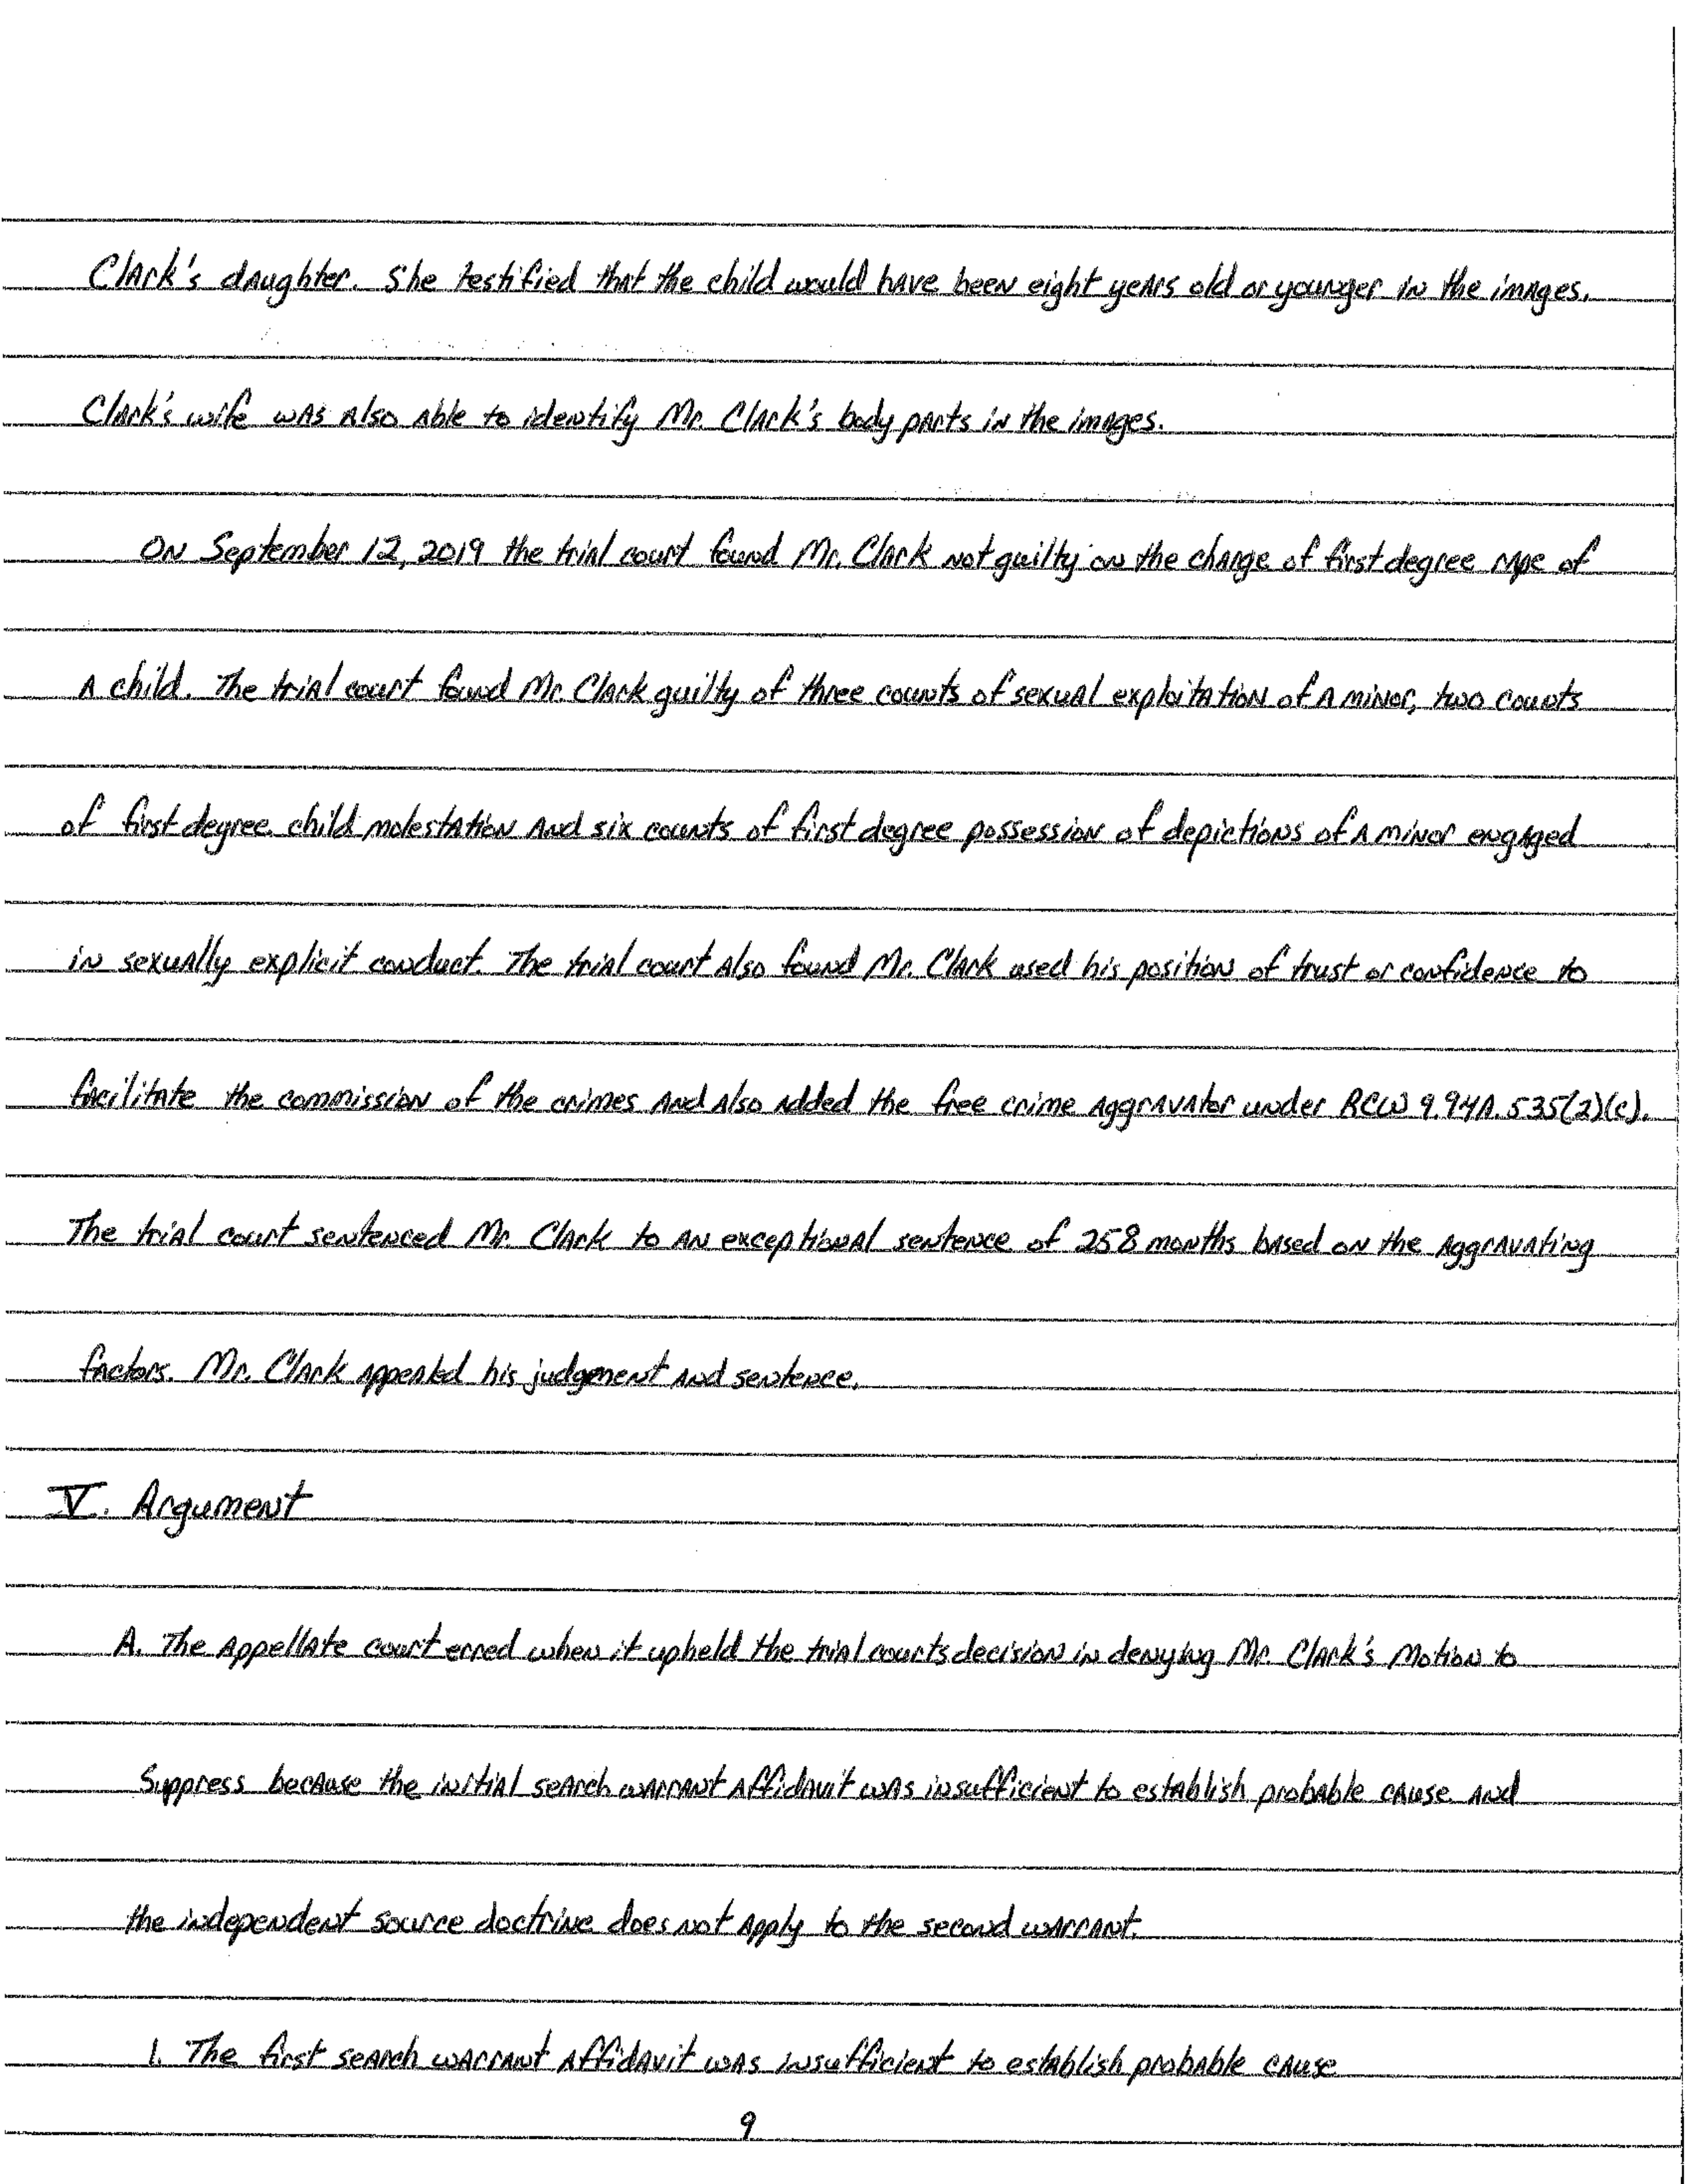 Clark's daughter. She testified that the child would have been eight years old or younger in the images.
Clark's wife was also able to identify Mr. Clark's body parts in the images.
On September 12, 2019 the trial court found Mr. Clark not guilty on the charge of first degree rape of
a child. The trial court found Mr. Clark guilty of three counts of sexual exploitation of a minor, two counts
of first degree child molestation and six counts of first degree possession of depictions of a minor engaged
in sexually explicit conduct. The trial court also found Mr. Clark used his position of trust or confidence to
facilitate the commission of the crimes and also added the free crime aggravator under RCW 9.94A.535(2)(c).
The trial court sentenced Mr. Clark to an exceptional sentence of 258 months based on the aggravating
factors. Mr. Clark appealed his judgement and sentence.
V. Argument
A. The Appellate court erred when it upheld the trial courts decision in denying Mr. Clark's Motion to
Suppress because the initial search warrant affidavit was insufficient to establish probable cause and
the independent source doctrine does not apply to the second warrant.
1. The first search warrant affidavit was insufficient to establish probable cause
9